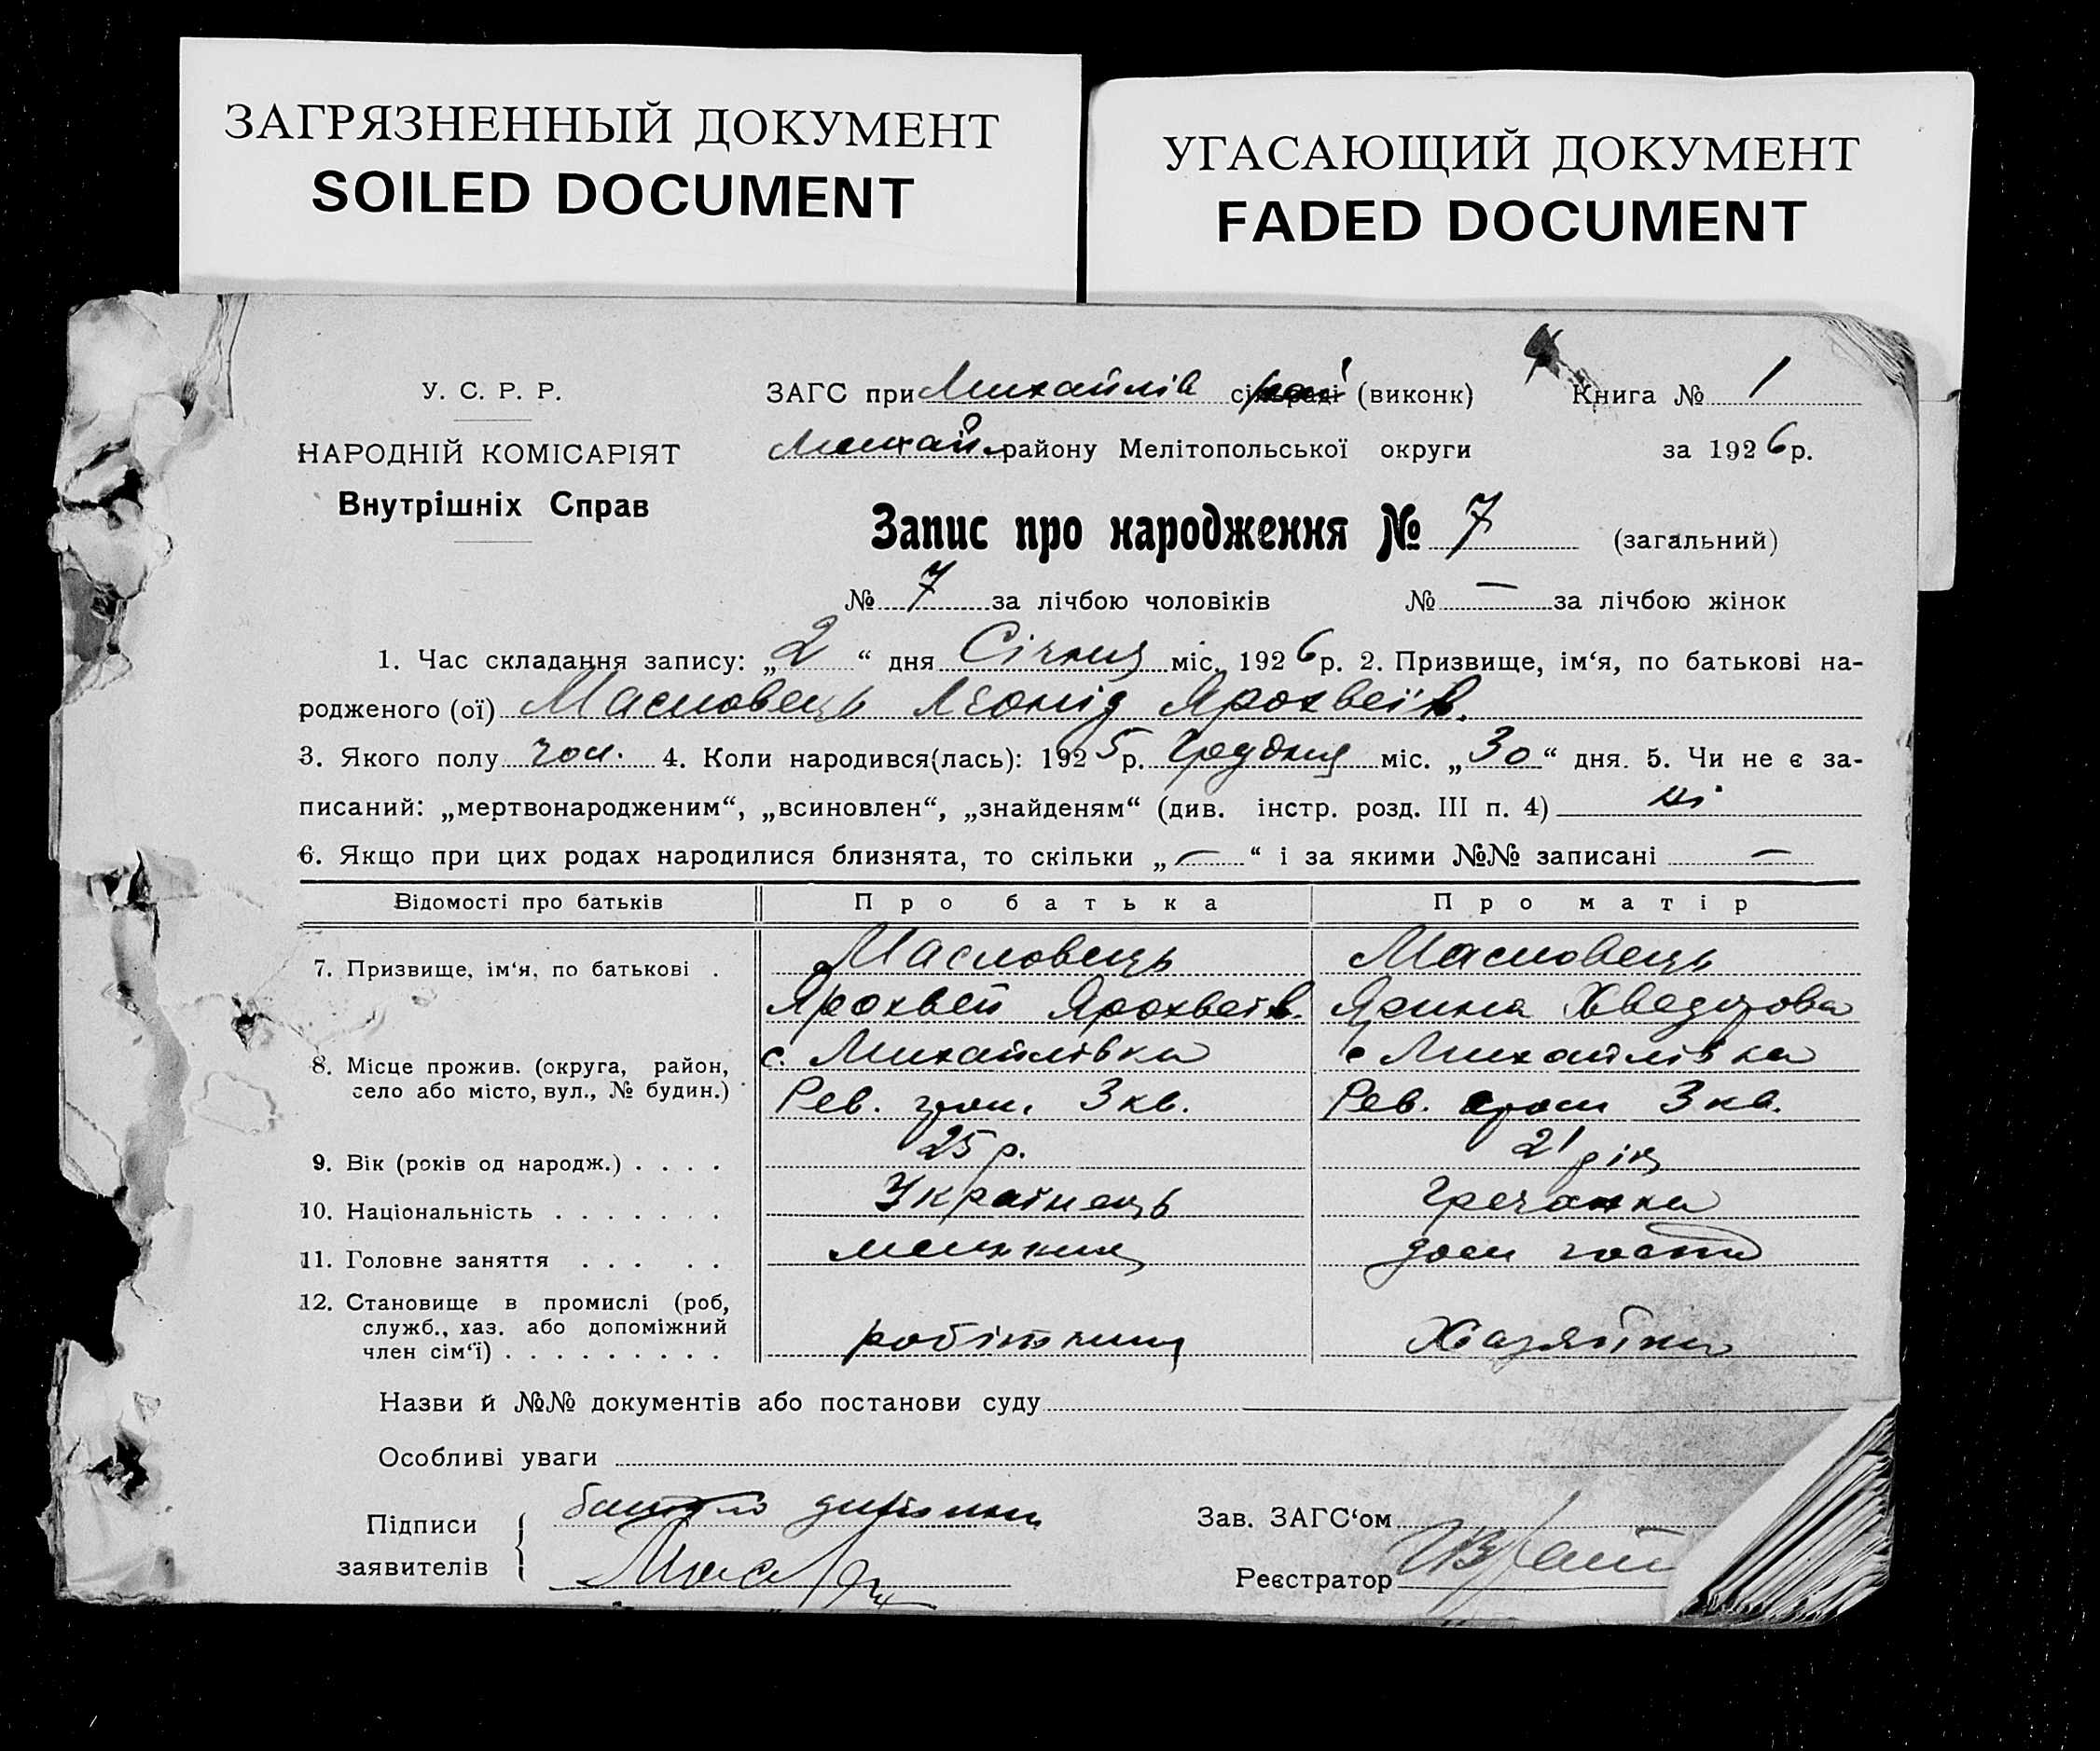 ЗАГРЯЗНЕННЫЙ ДОКУМЕНТ
SOILED DOCUMENT
УГАСАЮЩИЙ ДОКУМЕНТ
FADED DOCUMENT
У. С. Р. Р.
НАРОДНІЙ КОМІСАРІЯТ
Внутрішніх Справ
ЗАГС при Михайлів (виконк) Книга № 1
Михай району Мелітопольської округи за 1926 р.
Запис про народження № 7 (загальний)
№ 7 за лічбою чоловіків № — за лічбою жінок
1. Час складання запису: „2“ дня Січня міс. 1926 р. 2. Призвище, ім‘я, по батькові на-
родженого (ої) Масловець Леонід Ярохвеїв.
3. Якого полу чол. 4. Коли народився(лась): 1925 р. Грудня міс. „30“ дня. 5. Чи не є за-
писаний: „мертвонародженим“, „всиновлен“, „знайденям“ (див. інстр. розд. III п. 4) ні
6. Якщо при цих родах народилися близнята, то скільки „—“ і за якими №№ записані —
Відомості про батьків Про батька Про матір
7. Призвище, ім‘я, по батькові . Масловець Масловець
Ярохвей Ярохвеїв. Ярина Хведорова
8. Місце прожив. (округа, район, с. Михайлівка с Михайлівка
село або місто, вул., № будин.) Рев. 3 кв. Рев. 3 кв.
9. Вік (років од народж.) . . . . 25 р. 21 рік
10. Національність . . . . . . . Українець Гречанка
11. Головне заняття . . . . .
12. Становище в промислі (роб,
служб., хаз. або допоміжний робітник Хазяйка
член сім‘ї) . . . . . . . . .
Назви й №№ документів або постанови суду
Особливі уваги
Підписи заявителів батько дитини
Зав. ЗАГС‘ом
Реєстратор